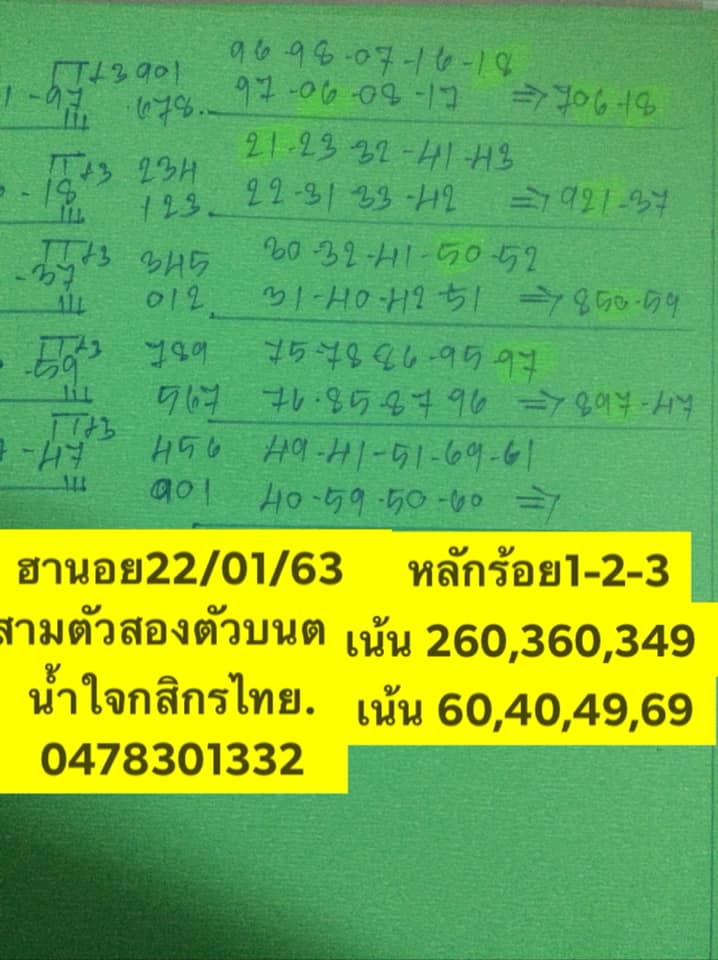 96-98-07-16-18
π+3 901
97-06-08-17 ⇒ 706-18
-97 678.
21-23-32-41-43
π+3 234
22-31-33-42 ⇒ 921-37
-18 123.
π+3 345 30-32-41-50-52
-37 012 31-40-42-51 ⇒ 850-59
π+3 789 75-78-86-95-97
-59 567 76-85-87-96 ⇒ 897-47
π+3 456 49-41-51-69-61
-47 901 40-59-50-60 ⇒
ฮานอย22/01/63 หลักร้อย1-2-3
สามตัวสองตัวบนต เน้น 260,360,349
น้ำใจกสิกรไทย. เน้น 60,40,49,69
0478301332